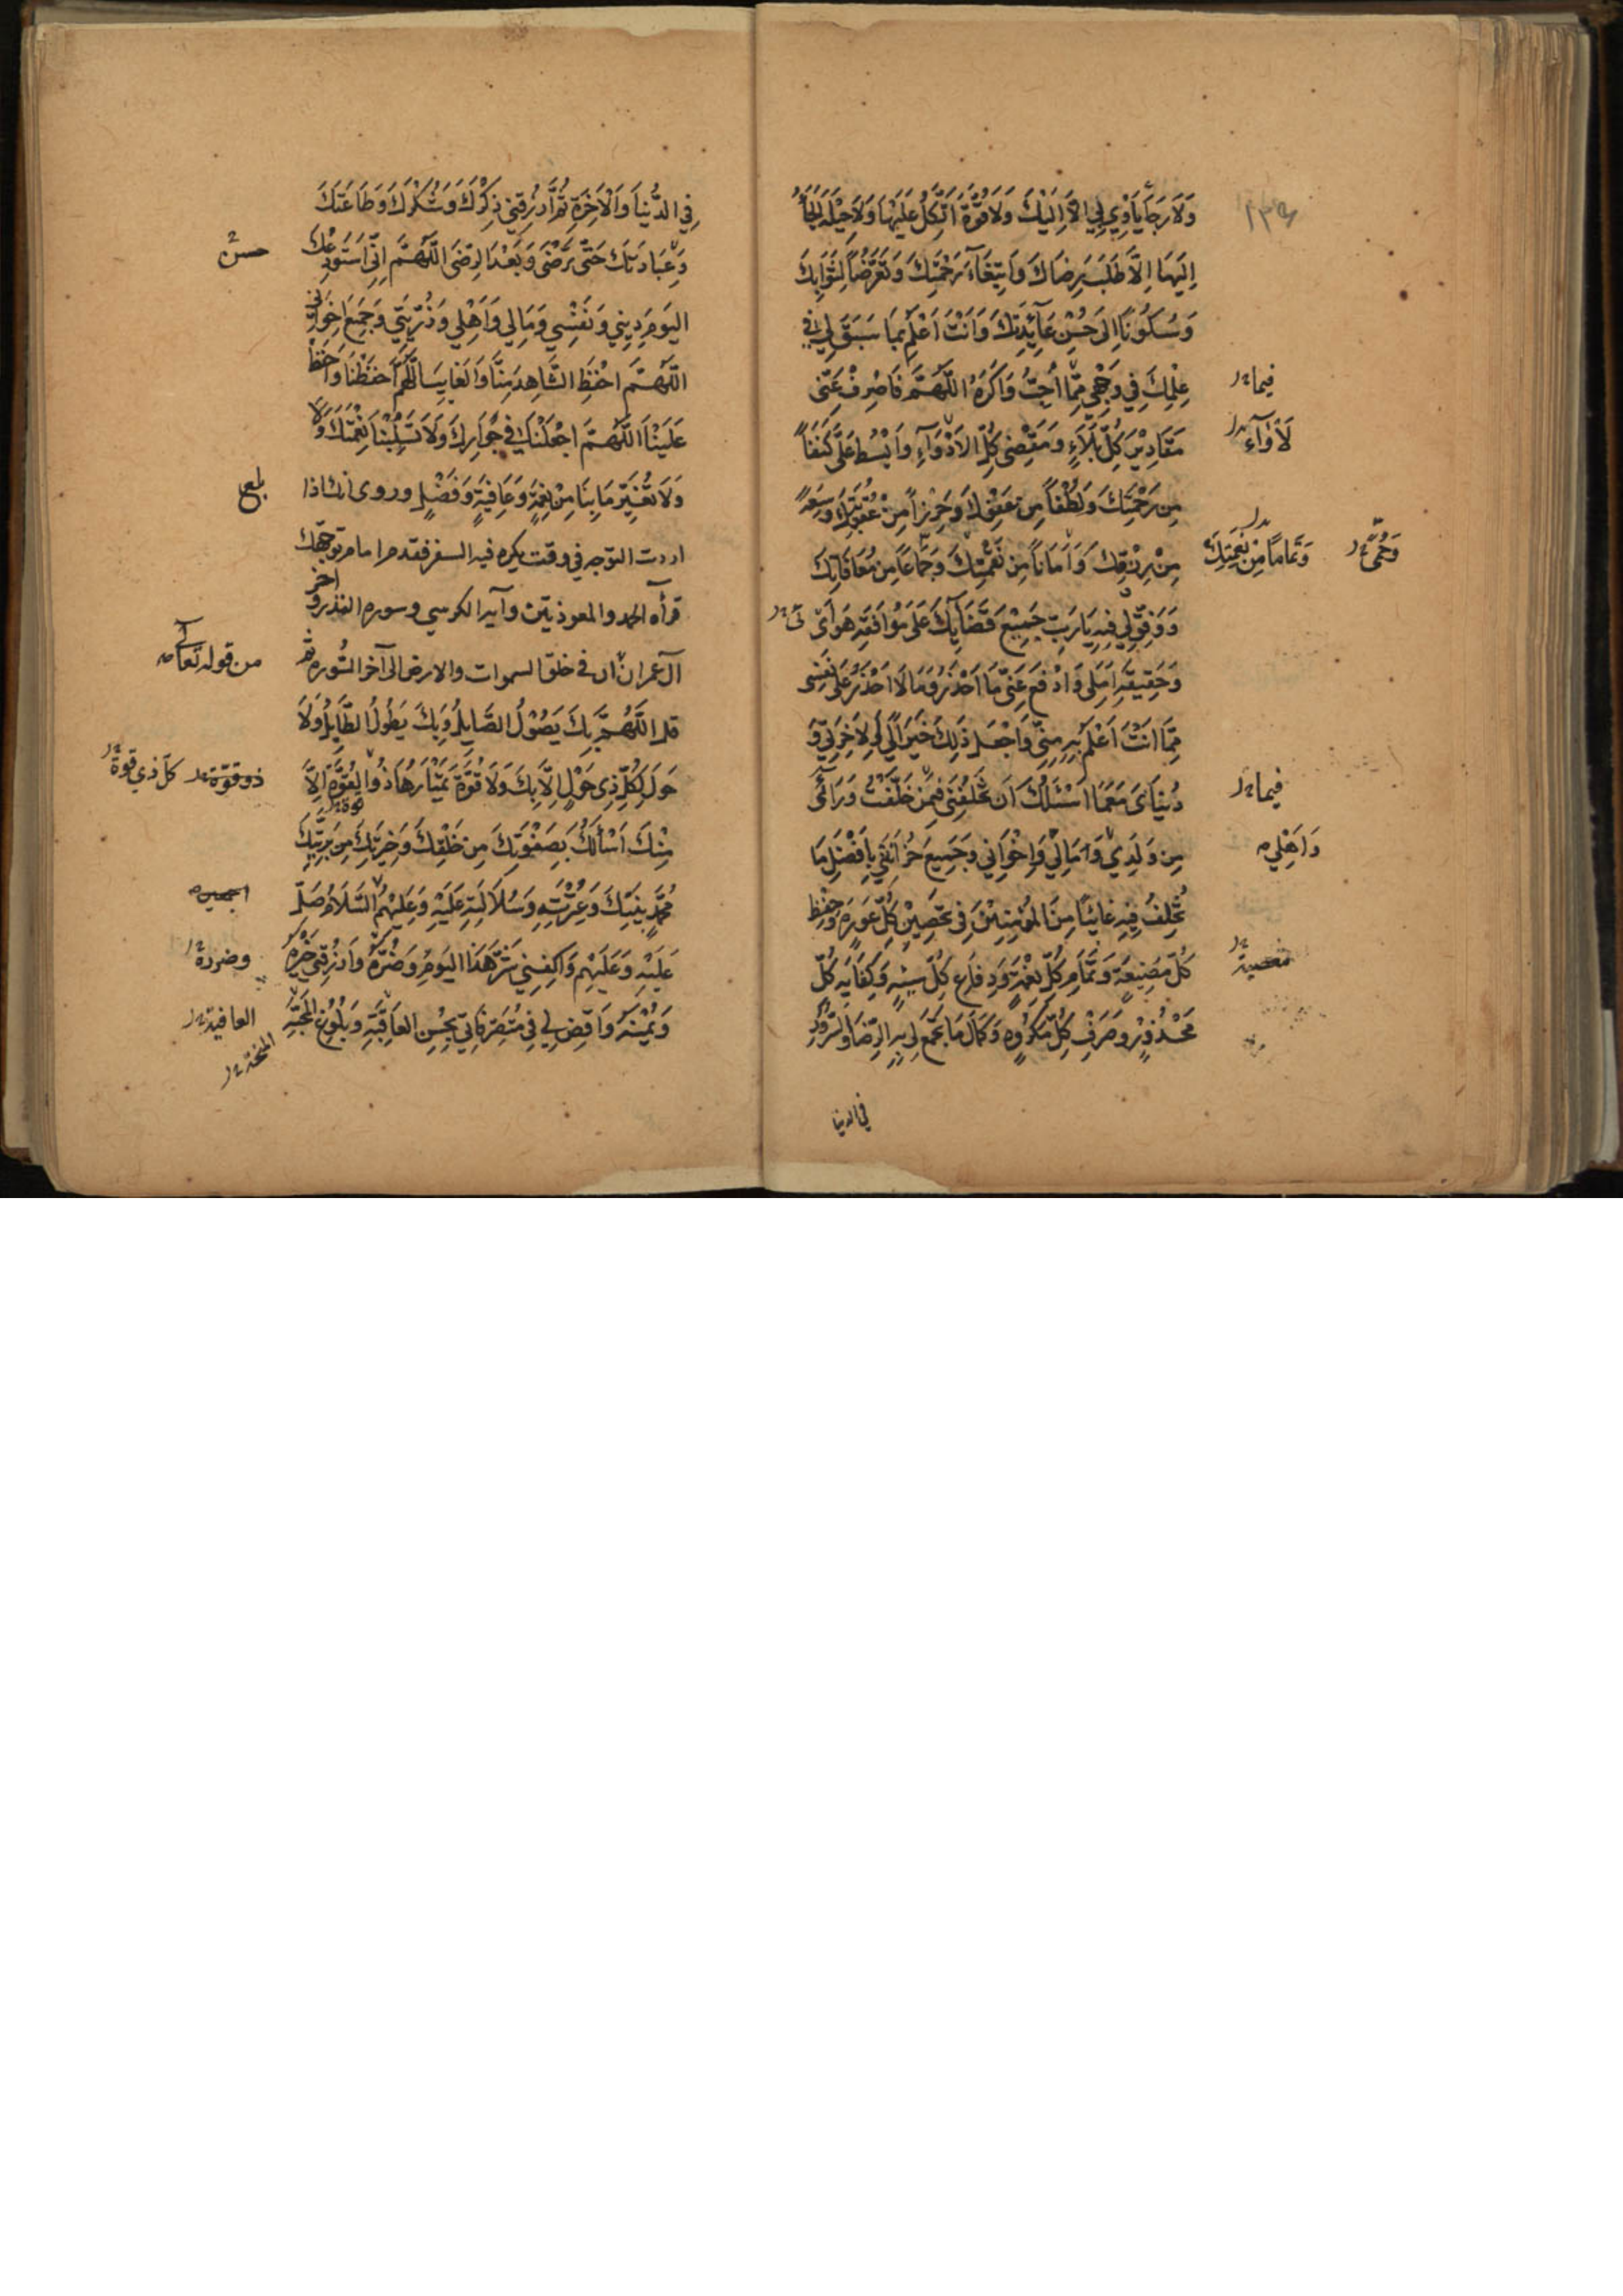 وَلَا رَجَاءَ يَأْوِي بِي اِلَّا اِلَيْكَ وَلَا قُوَّةَ اَتَّكِلُ عَلَيْهَا وَلَا حِيْلَةَ اَلْجَأُ
اِلَيْهَا اِلَّا طَلَبَ رِضَاكَ وَابْتِغَآءَ رَحْمَتِكَ وَتَعَرُّضاً لِثَوَابِكَ
وَسُكُوناً اِلَى حُسْنِ عَآئِدَتِكَ وَاَنْتَ اَعْلَمُ بِمَا سَبَقَ لِي فِي
عِلْمِكَ فِي وَجْهِي مِمَّا اُحِبُّ وَاَكْرَهُ اللَّهُمَّ فَاصْرِفْ عَنِّي
فيما
مَقَادِيْرَ كُلِّ بَلَآءٍ وَمَقْضِيَّ كُلِّ الْاَدْوَآءِ وَابْسُطْ عَلَيَّ كَنَفاً
لَأْوَآءٍ
مِنْ رَحْمَتِكَ وَلُطْفاً مِنْ عَفْوِكَ وَحِرْزاً مِنْ عُقُوبَتِكَ وَسِعَةً
مِنْ رِزْقِكَ وَاَمَاناً مِنْ نِقْمَتِكَ وَجِمَاعاً مِنْ مُعَافَاتِكَ
وَتَمَاماً مِنْ نِعْمَتِكَ
وَوَفِّقْ لِي فِيهِ يَا رَبِّ جَمِيْعَ قَضَآئِكَ عَلَى مُوَافَقَةِ هَوَايَ
وَحَقِيقَةِ اَمَلِي وَادْفَعْ عَنِّي مَا اَحْذَرُ وَمَا لَا اَحْذَرُ عَلَى نَفْسِي
مِمَّا اَنْتَ اَعْلَمُ بِهِ مِنِّي وَاجْعَلْ ذَلِكَ خَيْراً لِي لِآخِرَتِي وَ
دُنْيَايَ مَعَ مَا اَسْئَلُكَ اَنْ تَخْلُفَنِي فِيمَنْ خَلَّفْتُ وَرَائِي
فيما
مِنْ وَلَدِي وَمَالِي وَاِخْوَانِي وَجَمِيعِ حُزَانَتِي بِاَفْضَلِ مَا
وَاَهْلِي
تُخْلِفُ فِيهِ غَائِباً مِنَ الْمُؤْمِنِيْنَ فِي تَحْصِيْنِ كُلِّ عَوْرَةٍ وَحِفْظِ
كُلِّ مَضِيعَةٍ وَتَمَامِ كُلِّ نِعْمَةٍ وَدِفَاعِ كُلِّ سَيِّئَةٍ وَكِفَايَةِ كُلِّ
مَحْذُوْرٍ وَصَرْفِ كُلِّ مَكْرُوهٍ وَكَمَالِ مَا يَجْمَعُ لِي بِهِ الرِّضَا وَالسُّرُورُ
في الدنيا
فِي الدُّنْيَا وَالْآخِرَةِ ثُمَّ ارْزُقْنِي ذِكْرَكَ وَشُكْرَكَ وَطَاعَتَكَ
وَعِبَادَتَكَ حَتَّى تَرْضَى وَبَعْدَ الرِّضَى اللَّهُمَّ اِنِّي اَسْتَوْدِعُكَ
حسن
الْيَوْمَ دِينِي وَنَفْسِي وَمَالِي وَاَهْلِي وَذُرِّيَّتِي وَجَمِيعَ اِخْوَانِي
اللَّهُمَّ احْفَظِ الشَّاهِدَ مِنَّا وَالْغَايِبَ اللَّهُمَّ احْفَظْنَا وَاحْفَظْ
عَلَيْنَا اللَّهُمَّ اجْعَلْنَا فِي جِوَارِكَ وَلَا تَسْلُبْنَا نِعْمَتَكَ وَلَا
وَلَا تُغَيِّرْ مَا بِنَا مِنْ نِعْمَةٍ وَعَافِيَةٍ وَفَضْلٍ وروى انك اذا
بلغ
اردت التوجه في وقت يكره فيه السفر فقدم امام توجهك
قرأة الحمد والمعوذتين وآية الكرسي وسورة القدر وآخر
آل عمران ان في خلق السموات والارض الى آخر السورة ثم
من قوله تعالى
قل اللَّهُمَّ بِكَ يَصُوْلُ الصَّايِلُ وَبِكَ يَطُولُ الطَّايِلُ وَلَا
حَوْلَ لِكُلِّ ذِي حَوْلٍ اِلَّا بِكَ وَلَا قُوَّةَ يَمْتَارُهَا ذُو الْقُوَّةِ اِلَّا
ذو قوة كل ذي قوة
مِنْكَ اَسْأَلُكَ بِصَفْوَتِكَ مِنْ خَلْقِكَ وَخِيَرَتِكَ مِنْ بَرِيَّتِكَ
مُحَمَّدٍ نَبِيِّكَ وَعِتْرَتِهِ وَسُلَالَتِهِ عَلَيْهِ وَعَلَيْهِمُ السَّلَامُ صَلِّ
اجمعين
عَلَيْهِ وَعَلَيْهِمْ وَاكْفِنِي شَرَّ هَذَا الْيَوْمِ وَضُرَّهُ وَارْزُقْنِي خَيْرَهُ
وضرره
وَيُمْنَهُ وَاقْضِ لِي فِي مُتَصَرَّفَاتِي بِحُسْنِ الْعَاقِبَةِ وَبُلُوغِ الْمَحَبَّةِ
العافية